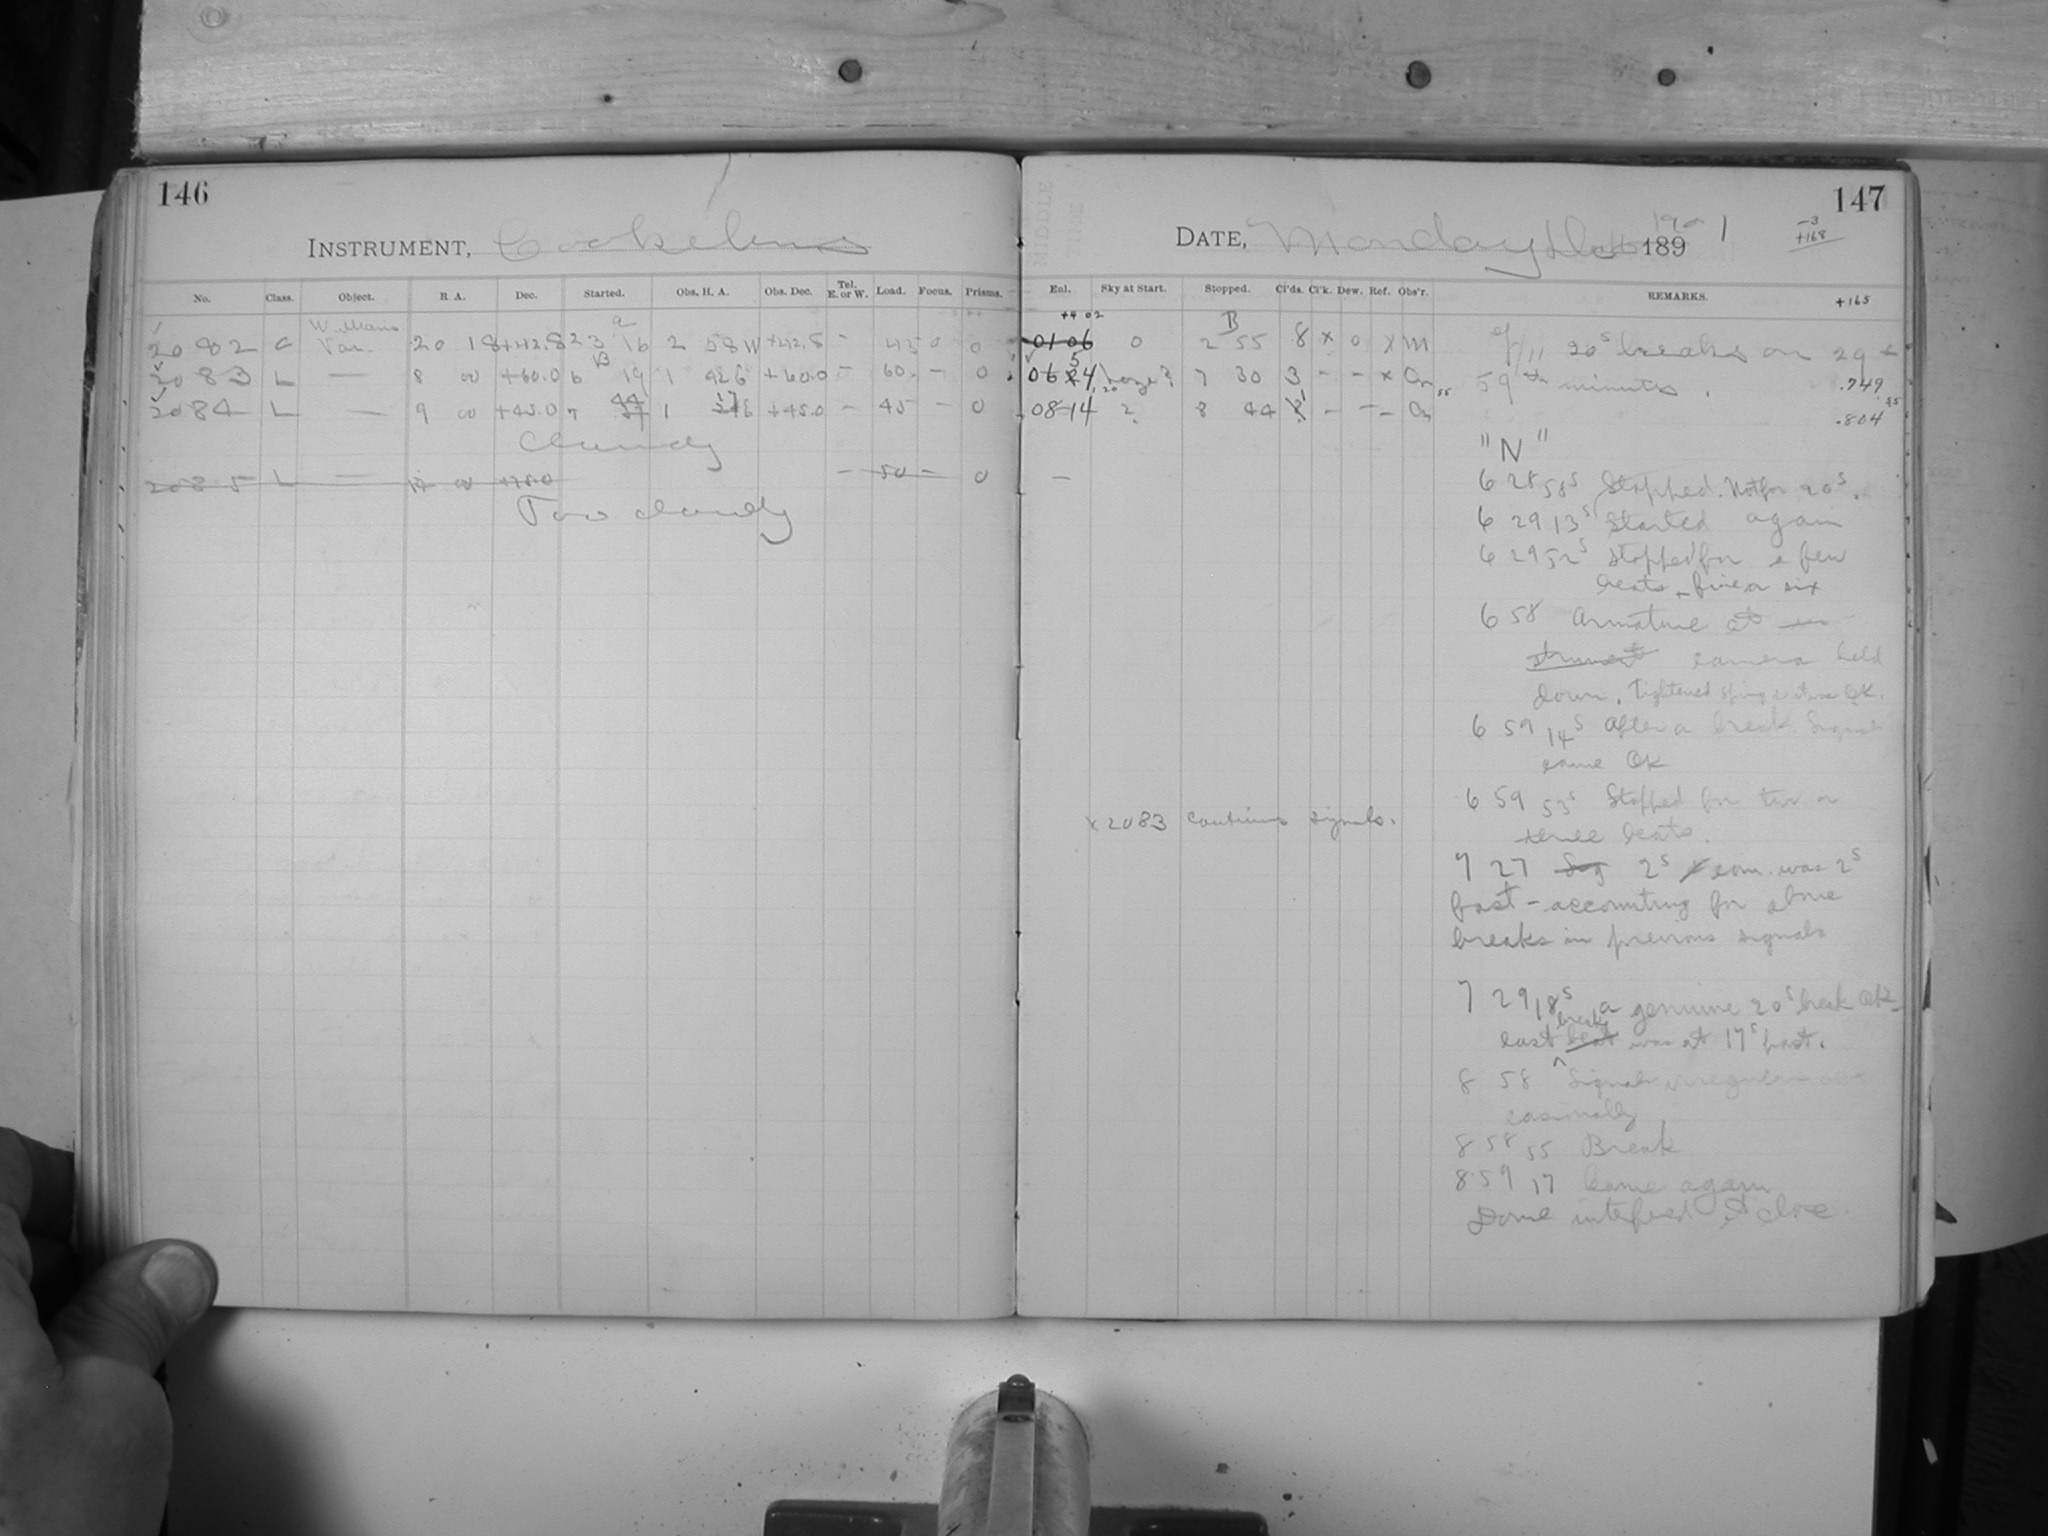 146
INSTRUMENT, Cooke lens
No. Class. Object. R A. Dec. Started. Obs. H. A. Obs. Dec. Tel. E. or W. Load. Focus. Prisms.
2082 C Williams Var. 20 18 +42.8 23 16 2 58 W +42.8 - 43 0 0
2083 L — 8 00 +60.0 6 19 1 +60.0 - 60. - 0
2084 L — 9 00 +45.0 7 44 1 +45.0 - 45 - 0
Cloudy
2085 L — 00 +75.0 - 50 - 0
Too cloudy
147
DATE, Monday 189 1901
-3
+168
+165
Enl. Sky at Start. Stopped. Cl'ds. Cl'k. Dew. Ref. Obs'r. REMARKS.
+4 02
01 06 0 2 55 8 x 0 x M 20s breaks on 29th
06 haze? 7 30 3 - - x 59th minutes. .749
08 14 2 8 44 - - - .804
"N"
6 28 58s Stopped. Not for 20s.
6 29 13s Started again
6 29 52s Stopped for a few
beats - five or six
6 58 Armature at in-
strument camera held
down. Tightened spring OK.
6 59 14s After a break signal
came OK
6 59 53s Stopped for two or
three beats.
x 2083 continuous signals.
7 27 Sig 2s com. was 2s
fast - accounting for above
breaks in previous signals
7 29 18s a genuine 20s break OK
last break beat was at 17s fast.
8 58 Signals irregular oc-
casionally
8 58 55 Break
8 59 17 Came again
Dome close.